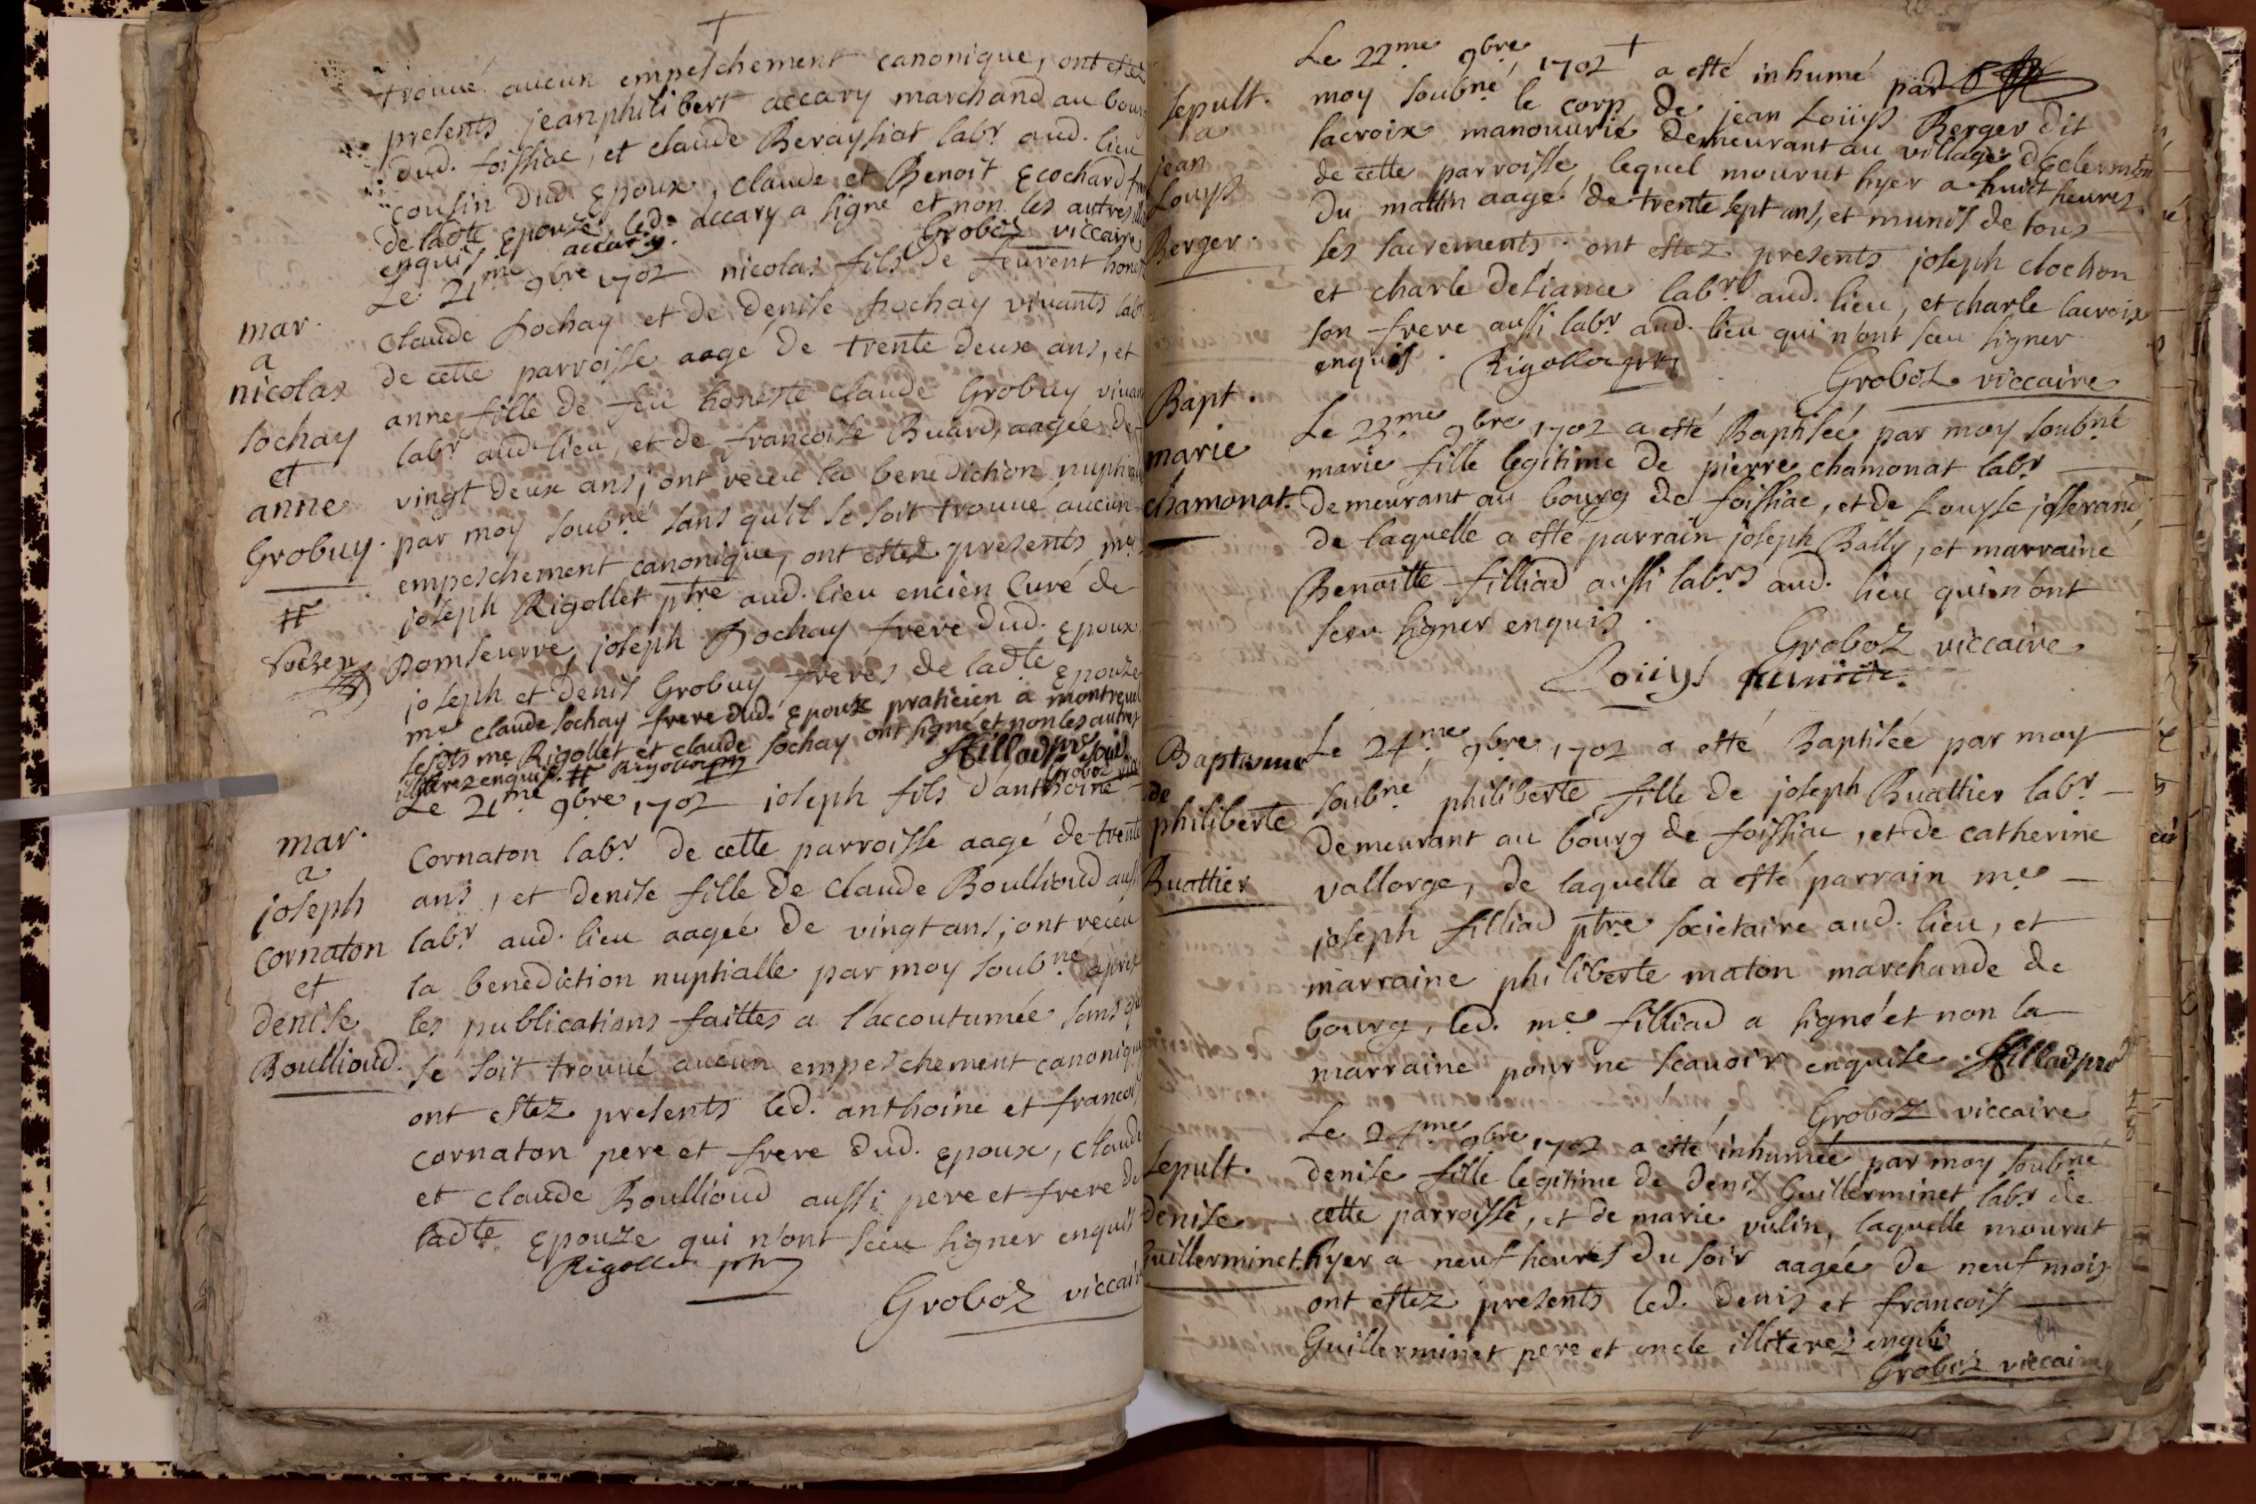 trouué aucun empeschement canonique, ont estez
presents jean philibert accary marchand au bour
dud. foissiac, et claude Berayssiat labr. aud. lieu
cousin dud. Epoux, claude et Benoit Ecochard
de ladte Epouse, led. accary a signé et non les autres
enquis, accary. Groboz viccaire
mar.
a
nicolas
sochay
et
anne
Grobuy.
Le 21me 9bre 1702 nicolas fils de
claude sochay et de denise sochay viuants lab
de cette parroisse aagé de trente deux ans, et
anne fille de feu honeste claude Grobuy viuan
labr aud. lieu, et de francoise Buard, aagée de
vingt deux ans, ont receu la benediction nupti
par moy soubné sans qu'il se soit trouué aucun
empeschement canonique, ont estez presents me
joseph Rigollet ptre aud. lieu encien Curé de
Domseurre, joseph sochay frere dud. Epoux
joseph et denis Grobuy freres de ladte Epouze
me claude sochay frere dud. Epoux praticien a montreuel
lesdts me Rigollet et claude sochay ont signé et non les autres
illiterez enquis. # Rigollet
Groboz
mar.
a
joseph
cornaton
et
denise
Boullioud.
Le 21me 9bre 1702 joseph fils d'anthoine
Cornaton labr. de cette parroisse aagé de trente
ans, et denise fille de claude Boullioud aussi
labr aud. lieu aageé de vingt ans, ont receu
la benediction nuptialle par moy soubné aprez
les publications faittes a l'accoutumée sans
se soit trouué aucun empeschement canonique
ont estez presents led. anthoine et francois
cornaton pere et frere dud. Epoux, claude
et claude Boullioud aussi pere et frere de
ladte Epouze qui n'ont sceu signer enquis
Rigollet
Groboz viccair
sepult.
a
jean
Louys
Berger.
Le 22me 9bre 1702 a esté inhumé par
moy soubné le corp de jean Loüys Berger dit
lacroix manouurié demeurant au village
de cette parroisse, lequel mourut hyer a huict heures
du mattin aagé de trente sept ans, et munis de tous
les sacrements. ont estez presents joseph clochon
et charle deliance labrs aud. lieu, et charle lacroix
son frere aussi labr aud. lieu qui n'ont sceu signer
enquis. Rigollet
Groboz viccaire
Bapt.
marie
chamonat.
Le 23me 9bre 1702 a esté Baptisée par moy soubné
marie fille legitime de pierre chamonat labr
demeurant au bourg de foissiac, et de Louyse josserand,
de laquelle a esté parrain joseph Bally, et marraine
Benoitte filliad aussi labrs aud. lieu qui n'ont
sceu signer enquis.
Groboz viccaire
Baptesme
de
philiberte
Buattier
Le 24me 9bre 1702 a esté Baptisée par moy
soubné philiberte fille de joseph Buattier labr
demeurant au bourg de foissiac, et de catherine
vallorge, de laquelle a esté parrain me
joseph filliad ptre societaire aud. lieu, et
marraine philiberte maton marchande de
bourg, led. me filliad a signé et non la
marraine pour ne scauoir enquise.
Groboz viccaire
sepult.
denise
Guillerminet.
Le 24me 9bre 1702 a esté inhumée par moy soubné
denise fille legitime de denis Guillerminet labr de
cette parroisse, et de marie vulin, laquelle mourut
hyer a neuf heures du soir aagée de neuf mois
ont estez presents led. denis et francois
Guillerminet pere et oncle illiterez enquis
Groboz viccaire